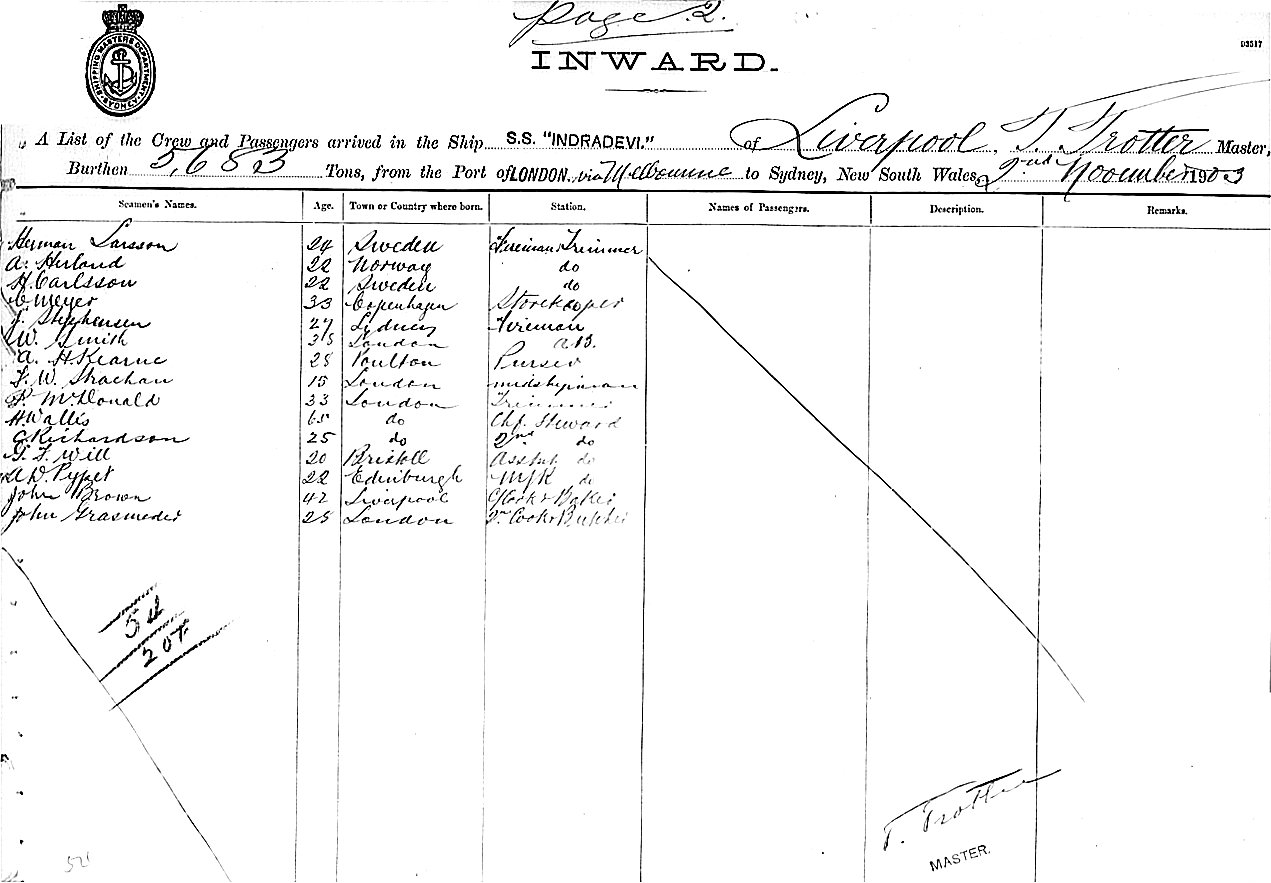 page 2.
INWARD.
D3517
SHIPPING MASTERS DEPARTMENT SYDNEY
A List of the Crew and Passengers arrived in the Ship S.S. "INDRADEVI." of Liverpool, T. Trotter Master,
Burthen 5,683 Tons, from the Port of LONDON via Melbourne to Sydney, New South Wales, 2nd November 1903
Seamen's Names. Age. Town or Country where born. Station. Names of Passengers. Description. Remarks.
Herman Larsson 24 Sweden Fireman & Trimmer
A. Herland 22 Norway do
H. Carlsson 22 Sweden do
C. Meyer 33 Copenhagen Storekeeper
J. Stephensen 27 Sydney Fireman
W. Smith 35 London A.B.
A. H. Kearne 28 Poulton Purser
F. W. Strachan 15 London midshipman
P. McDonald 33 London Trimmer
H. Wallis 65 do Chf. Steward
C. Richardson 25 do 2nd do
G. F. Will 20 Bristoll Assnt. do
A. D. Pypet 22 Edinburgh M/R do
John Brown 42 Liverpool Cook & Baker
John Grasmeder 25 London 2nr Cook & Butcher
54
207
T. Trotter
MASTER.